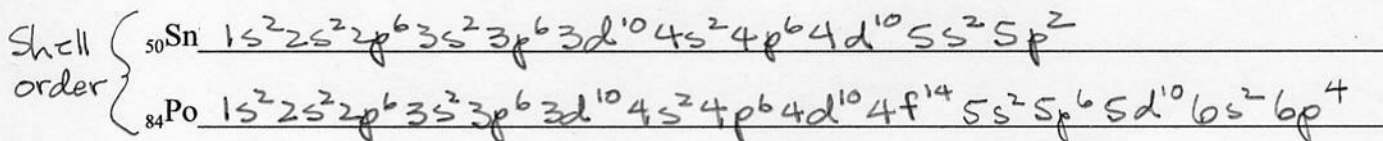 Shell order { ₅₀Sn 1s²2s²2p⁶3s²3p⁶3d¹⁰4s²4p⁶4d¹⁰5s²5p²
₈₄Po 1s²2s²2p⁶3s²3p⁶3d¹⁰4s²4p⁶4d¹⁰4f¹⁴5s²5p⁶5d¹⁰6s²6p⁴